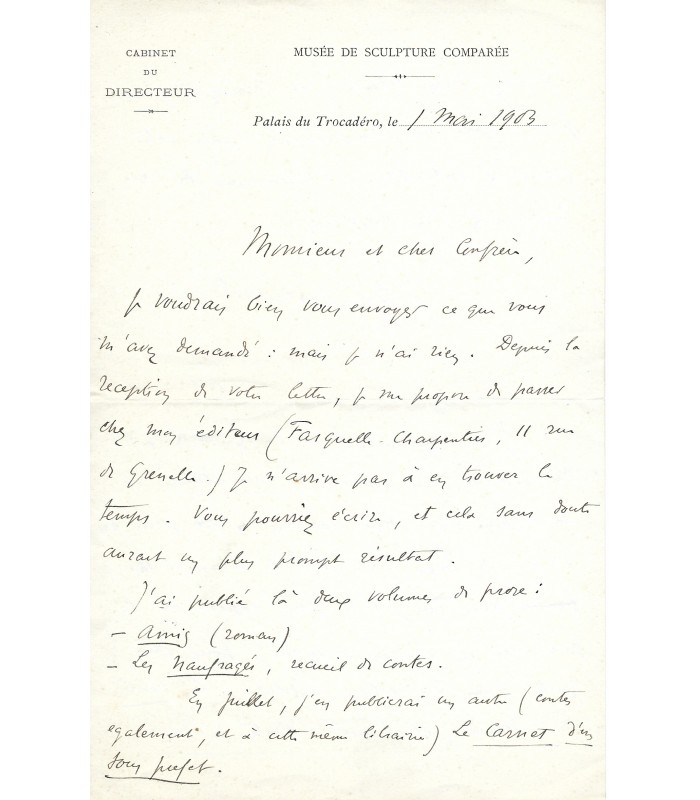 CABINET
DU
DIRECTEUR
MUSÉE DE SCULPTURE COMPARÉE
Palais du Trocadéro, le 1 Mai 1903
Monsieur et cher Confrère,
Je voudrais bien vous envoyer ce que vous
m'avez demandé : mais je n'ai rien. Depuis la
reception de votre lettre, je me propose de passer
chez mon éditeur (Fasquelle-Charpentier, 11 rue
de Grenelle.) Je n'arrive pas à en trouver le
temps. Vous pourriez écrire, et cela sans doute
aurait un plus prompt résultat.
J'ai publié là deux volumes de prose :
– Amis (roman)
– Les Naufragés, recueil de contes.
En juillet, j'en publierai un autre (contes
egalement, et à cette même librairie) Le Carnet d'un
sous prefet.